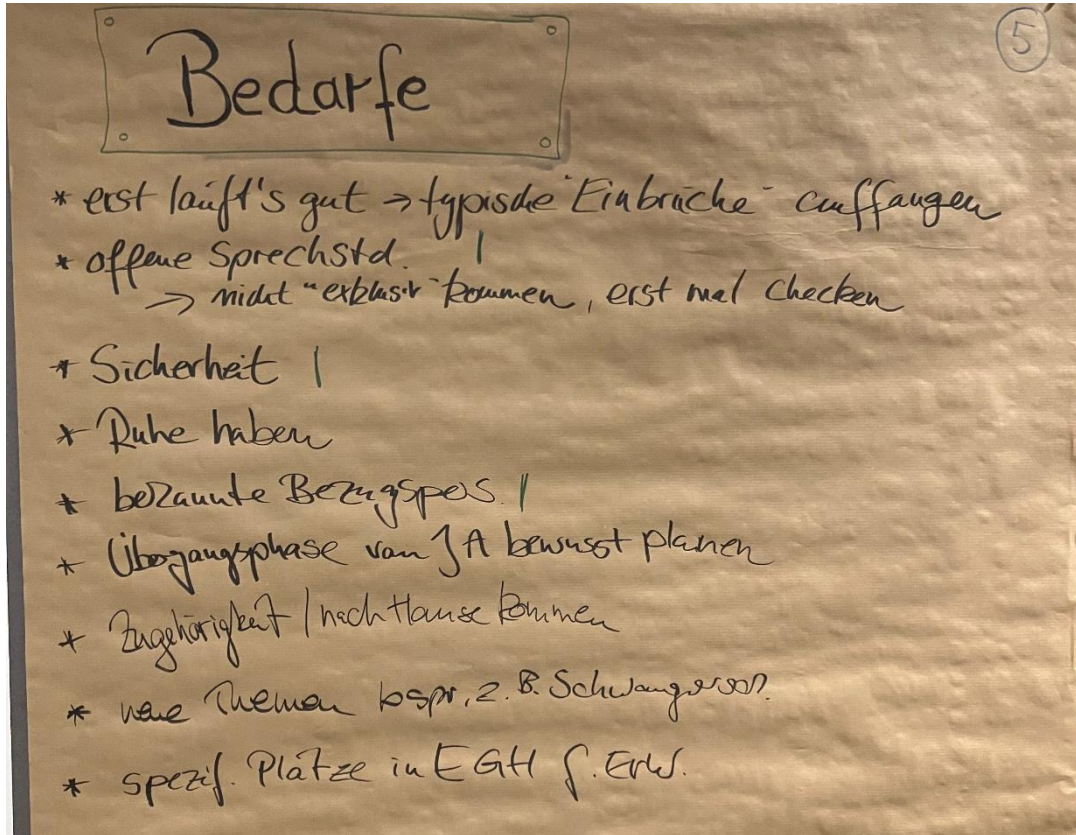 5
Bedarfe
* erst läuft's gut → typische "Einbrüche" auffangen
* offene Sprechstd. |
→ nicht "exklusiv" kommen, erst mal checken
* Sicherheit |
* Ruhe haben
* bekannte Bezugspers. |
* Übergangsphase vom JA bewusst planen
* Zugehörigkeit / nach Hause kommen
* neue Themen bspr. z.B. Schwangersch.
* spezif. Plätze in EGH f. Erw.